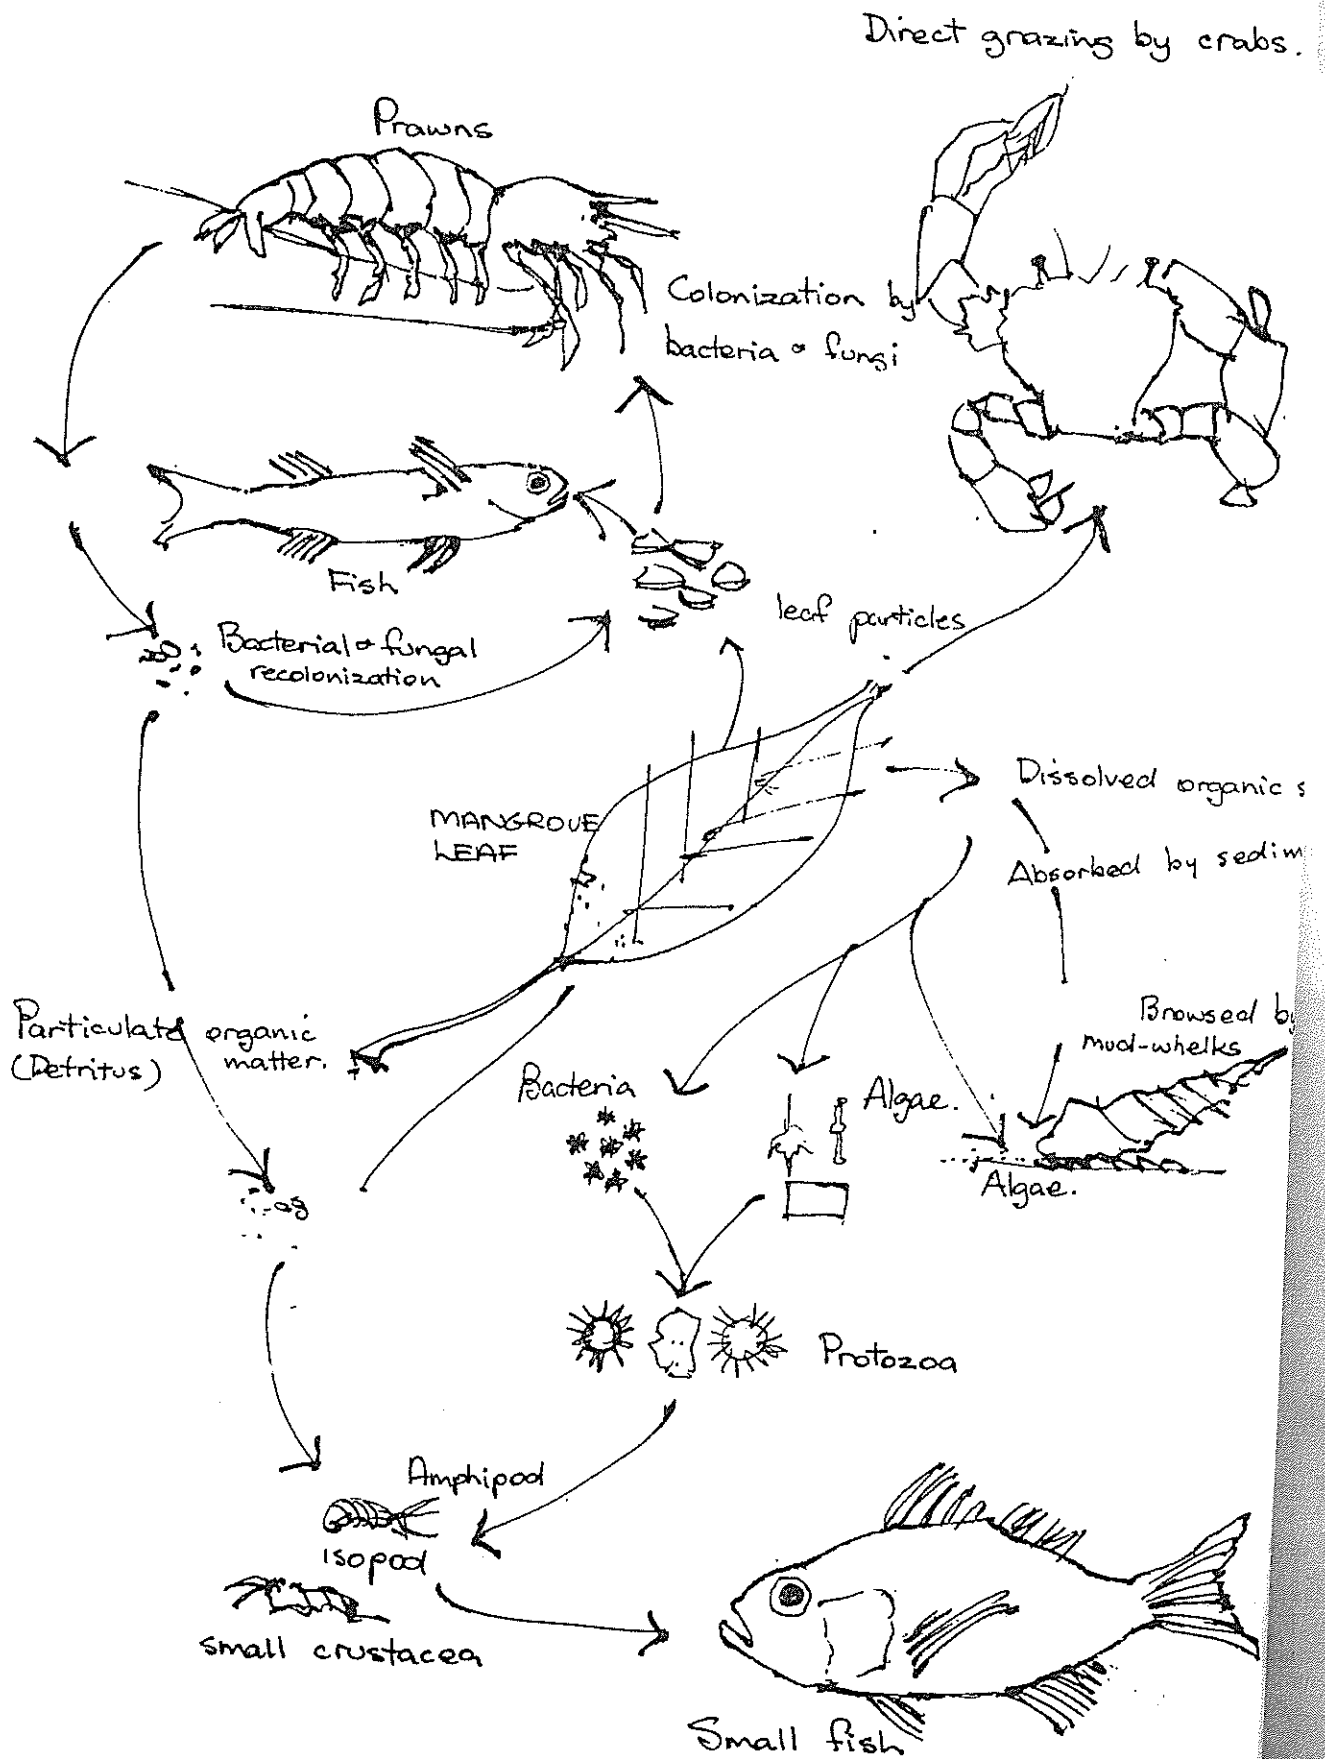 Direct grazing by crabs.
Prawns
Colonization by
bacteria & fungi
Fish
leaf particles
Bacterial & fungal
recolonization
MANGROVE
LEAF
Dissolved organic
Absorbed by
Particulate organic
matter.
(Detritus)
Browsed by
mud-whelks
Bacteria
Algae.
Algae.
Protozoa
Amphipod
isopod
small crustacea
Small fish